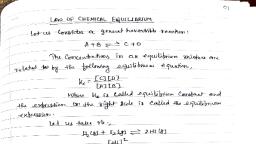 01
LAW OF CHEMICAL EQUILIBRIUM
Let us consider a general reversible reaction:
A+B ⇌ C+D
The concentrations in an equilibrium mixture are
related by the following equilibrium equation,
Kc = [C][D]
[A][B]
Where Kc is called equilibrium constant and
the expression on the right side is called the equilibrium
expression.
Let us take the,
H₂(g) + I₂(g) ⇌ 2HI(g)
[HI]²